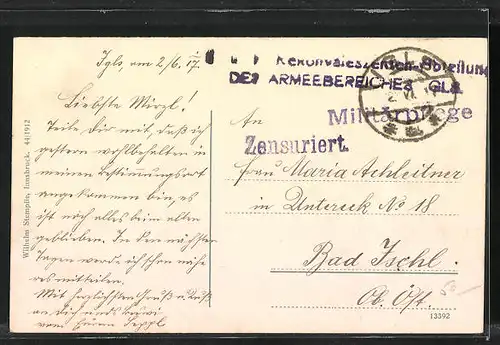 Igls, am 2/6. 17.
Liebste Mirzl!
Teile Dir mit, daß ich
gestern wohlbehalten in
meinen Bestimmungsort
angekommen bin, es
ist noch alles beim alten
geblieben. In den nächsten
Tagen werde ich schon nähe
res mitteilen.
Mit herzlichsten Gruß u. Kuß
an Dich und
von Euren Seppl
Wilhelm Stempfle, Innsbruck. 44/1912
Rekonvaleszenten-Abteilung
DES ARMEEBEREICHES
Militärpflege
Zensuriert.
An
Frau Maria Achleitner
in Untereck No 18
Bad Ischl.
Ob. Öst.
13392